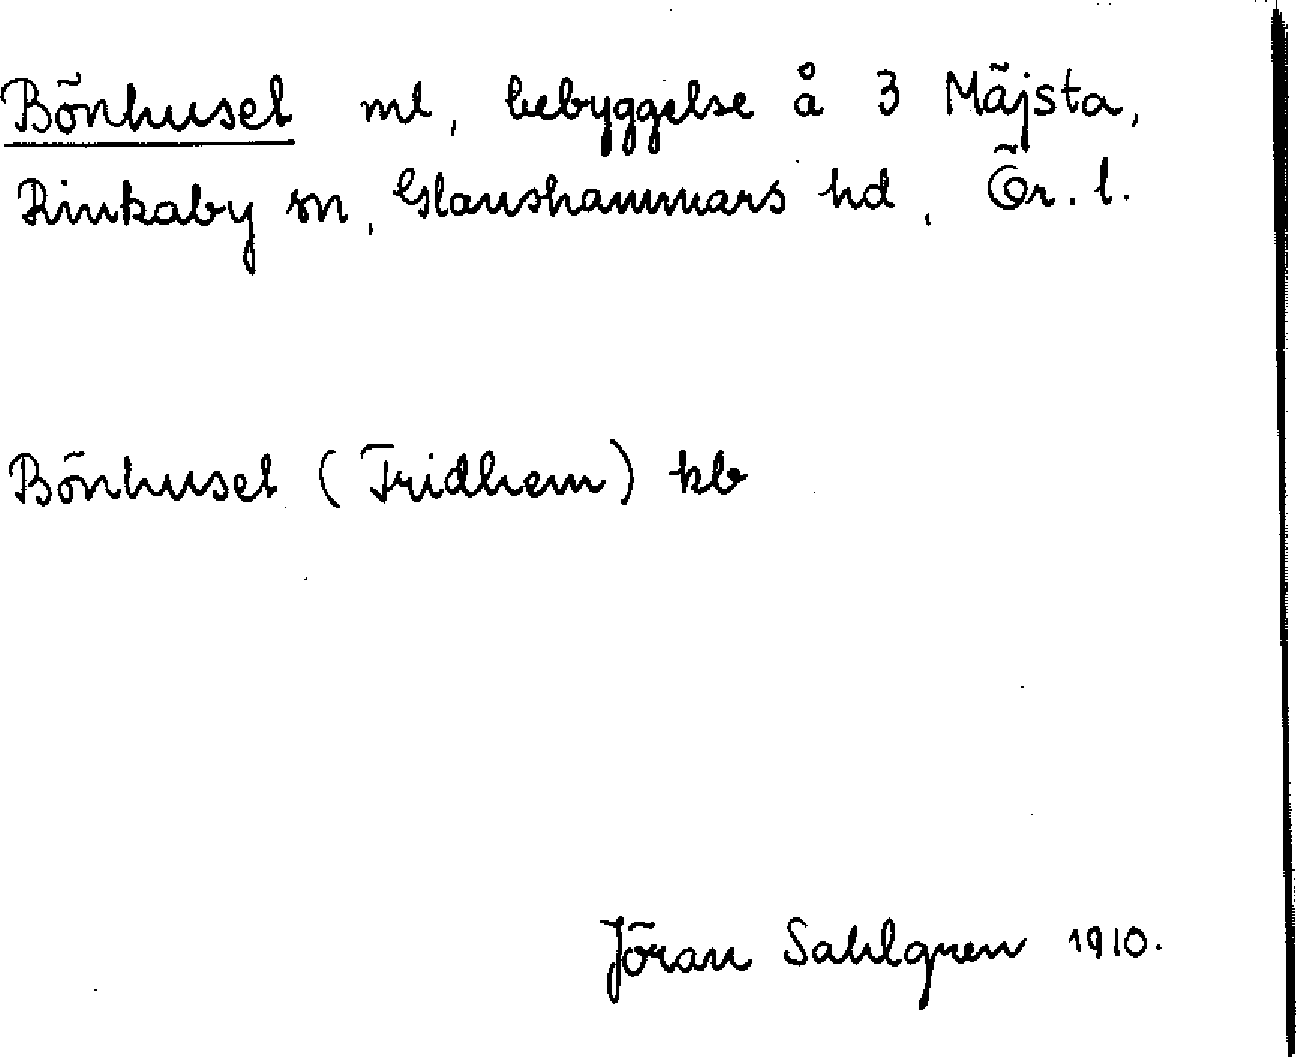 Bönhuset ml, bebyggelse å 3 Mäjsta,
Rinkaby sn, Glanshammars hd, Ör. l.
Bönhuset (Fridhem) kb
Jöran Sahlgren 1910.